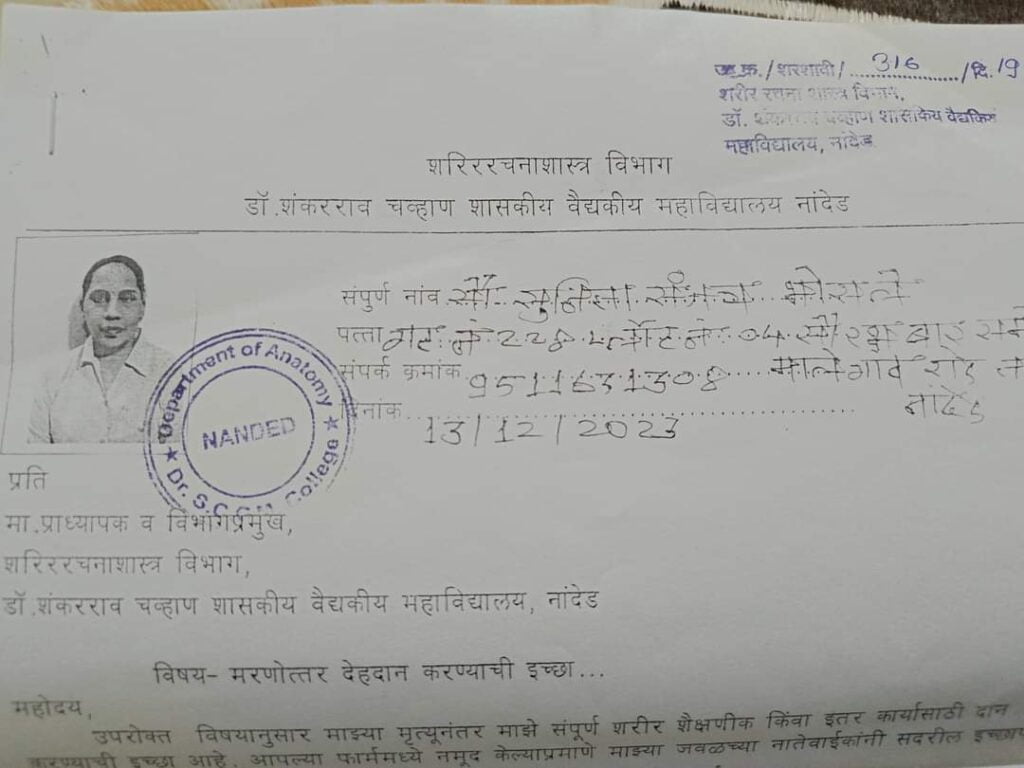 जा.क्र./शरशावि/......316......../दि.19
शरीर रचना शास्त्र विभाग,
डॉ. शंकरराव चव्हाण शासकिय वैद्यकिय
महाविद्यालय, नांदेड
शरिररचनाशास्त्र विभाग
डॉ.शंकरराव चव्हाण शासकीय वैद्यकीय महाविद्यालय नांदेड
संपुर्ण नांव सौ. सुनिता संजय भोसले
पत्ता गट नं 228 प्लॉट नं. 04
संपर्क क्रमांक 9511631308 मालेगाव रोड
दिनांक नांदेड
13/12/2023
Department of Anatomy
NANDED
Dr. S.C. College
प्रति
मा.प्राध्यापक व विभागप्रमुख,
शरिररचनाशास्त्र विभाग,
डॉ.शंकरराव चव्हाण शासकीय वैद्यकीय महाविद्यालय, नांदेड
विषय- मरणोत्तर देहदान करण्याची इच्छा...
महोदय,
उपरोक्त विषयानुसार माझ्या मृत्यूनंतर माझे संपूर्ण शरीर शैक्षणीक किंवा इतर कार्यासाठी दान
करण्याची इच्छा आहे. आपल्या फार्ममध्ये नमूद केल्याप्रमाणे माझ्या जवळच्या नातेवाईकांनी सदरील